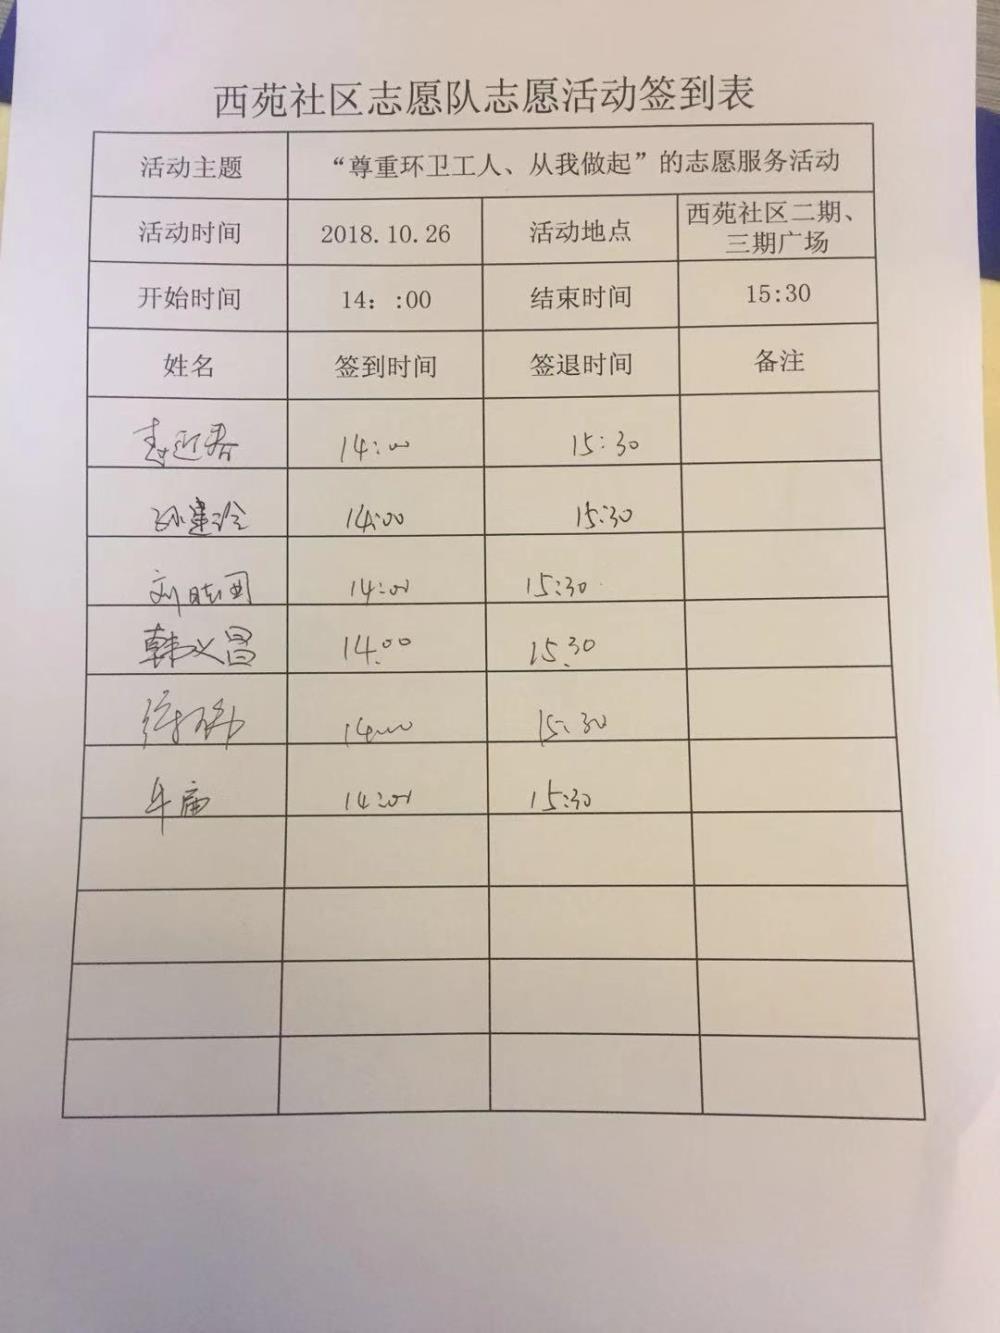 西苑社区志愿队志愿活动签到表
活动主题 “尊重环卫工人、从我做起”的志愿服务活动
活动时间 2018.10.26 活动地点 西苑社区二期、
三期广场
开始时间 14: :00 结束时间 15:30
姓名 签到时间 签退时间 备注
14:00 15:30
孙建玲 14:00 15:30
刘晓 14:00 15:30
韩义昌 14:00 15:30
14:00 15:30
牛庙 14:00 15:30